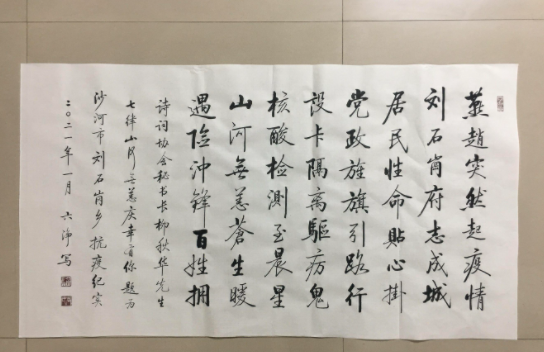 燕趙突然起疫情
刘石岗府志成城
居民性命貼心掛
党政旌旗引路行
设卡隔离驅疠鬼
核酸检测至晨星
山河無恙蒼生暖
遇险冲锋百姓拥
诗词协会秘书长柳秋华先生
七律山河无恙庆幸有你题为
沙河市刘石岗乡抗疫纪实
二〇二一年一月 六净写